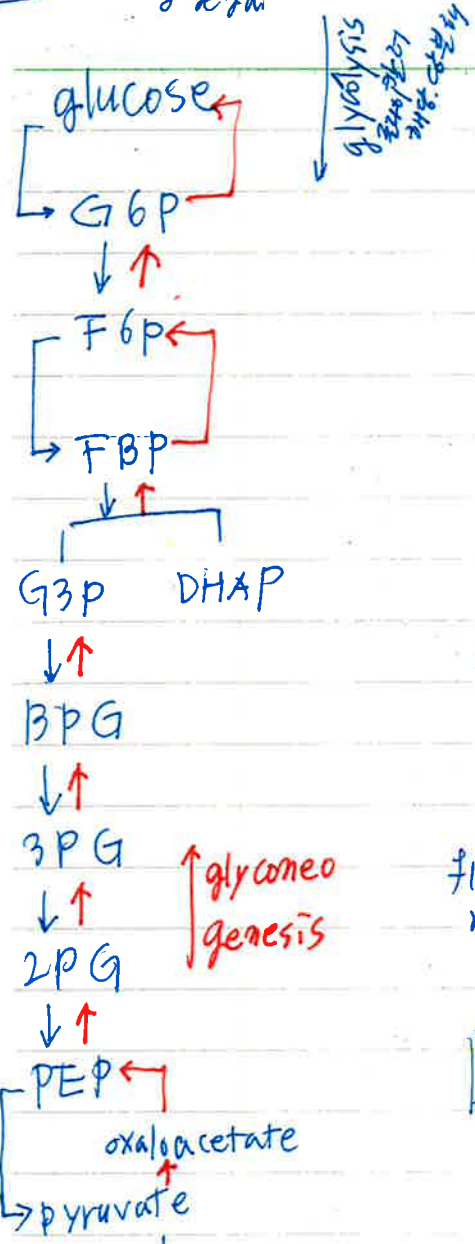 glucose
glycolysis
G6P
F6P
FBP
G3P DHAP
BPG
3PG
glyconeo
genesis
2PG
PEP
oxaloacetate
pyruvate